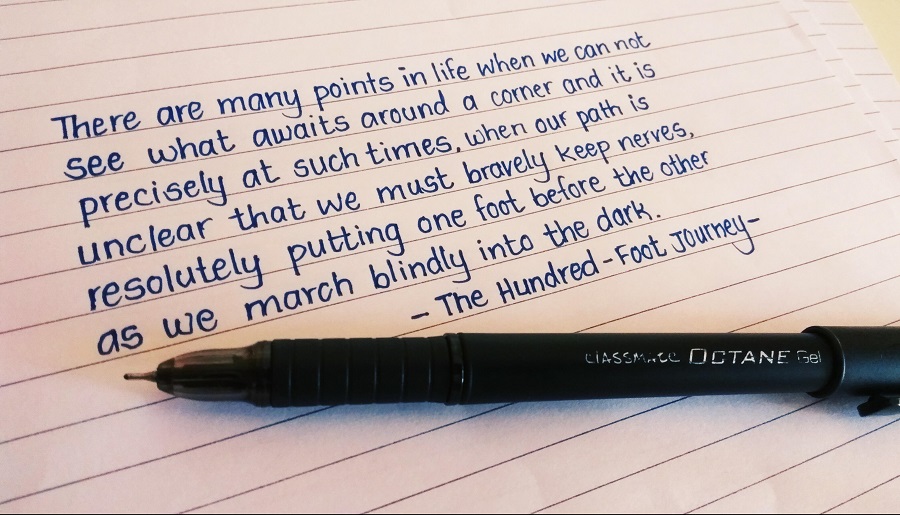 There are many points in life when we can not
see what awaits around a corner and it is
precisely at such times, when our path is
unclear that we must bravely keep nerves,
resolutely putting one foot before the other
as we march blindly into the dark.
- The Hundred-Foot Journey-
CLASSMATE OCTANE Gel